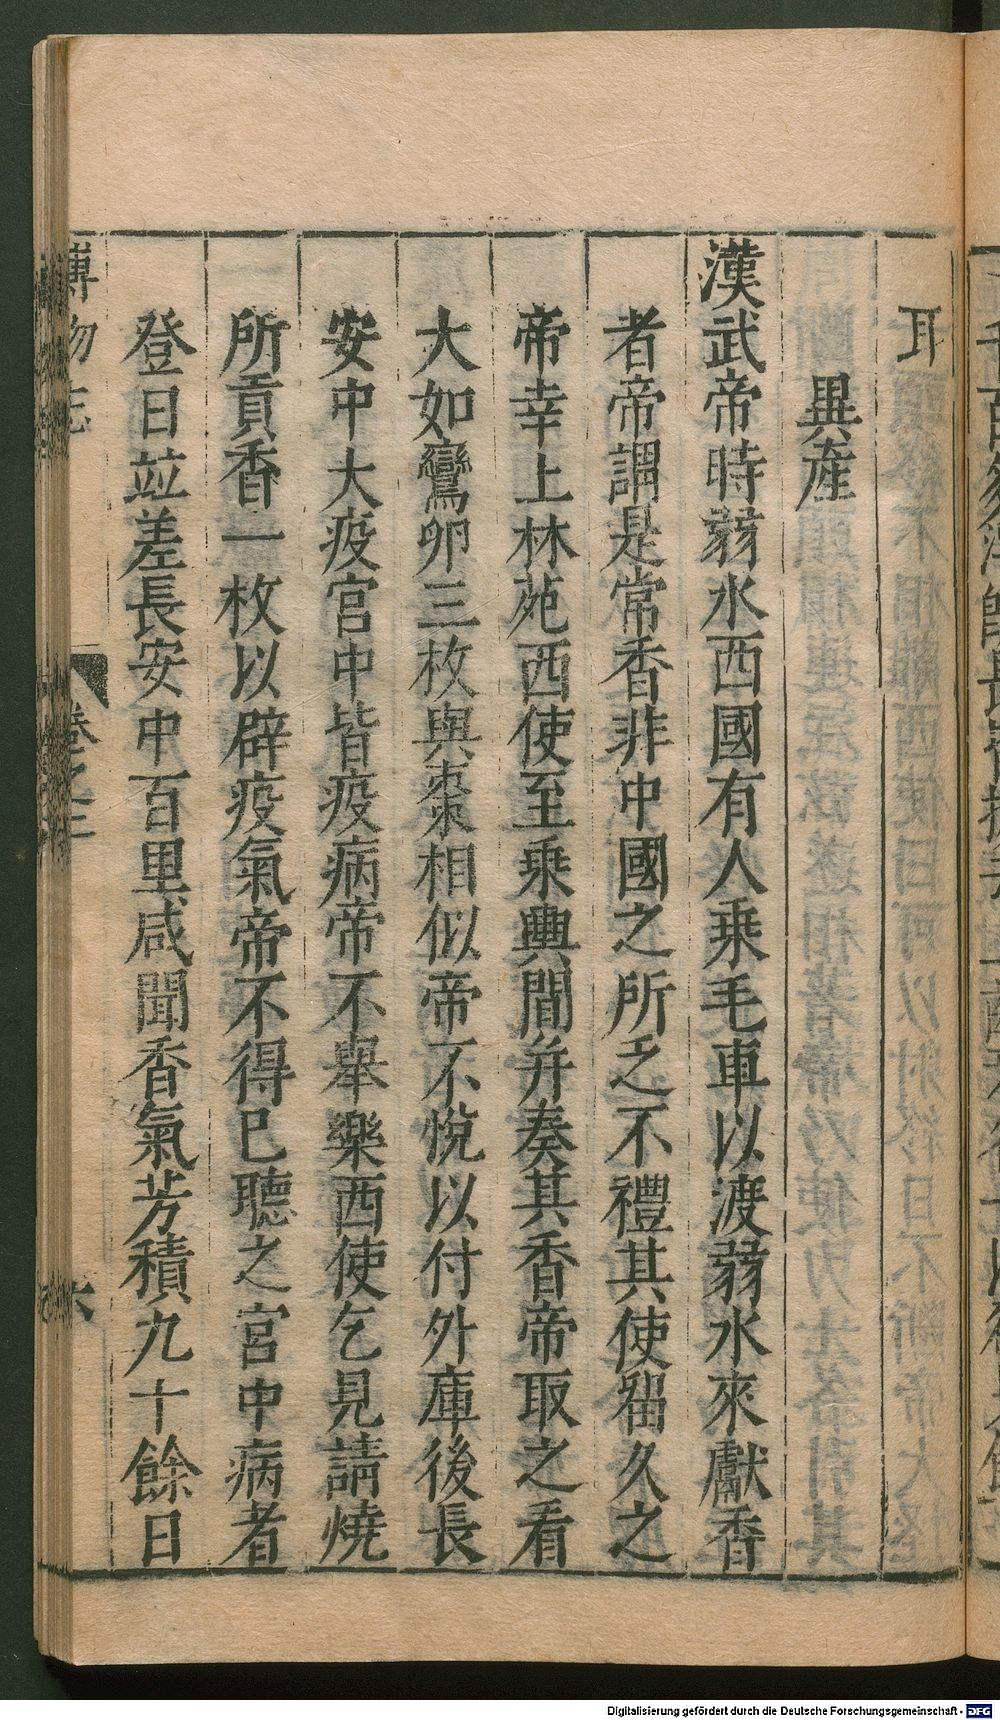 耳
異產
漢武帝時弱水西國有人乘毛車以渡弱水來獻香
者帝謂是常香非中國之所乏不禮其使留久之
帝幸上林苑西使至乘輿間并奏其香帝取之看
大如鸞卵三枚與棗相似帝不悅以付外庫後長
安中大疫宮中皆疫病帝不舉樂西使乞見請燒
所貢香一枚以辟疫氣帝不得已聽之宮中病者
登日並差長安中百里咸聞香氣芳積九十餘日
博物志 卷之三 六
Digitalisierung gefördert durch die Deutsche Forschungsgemeinschaft - DFG